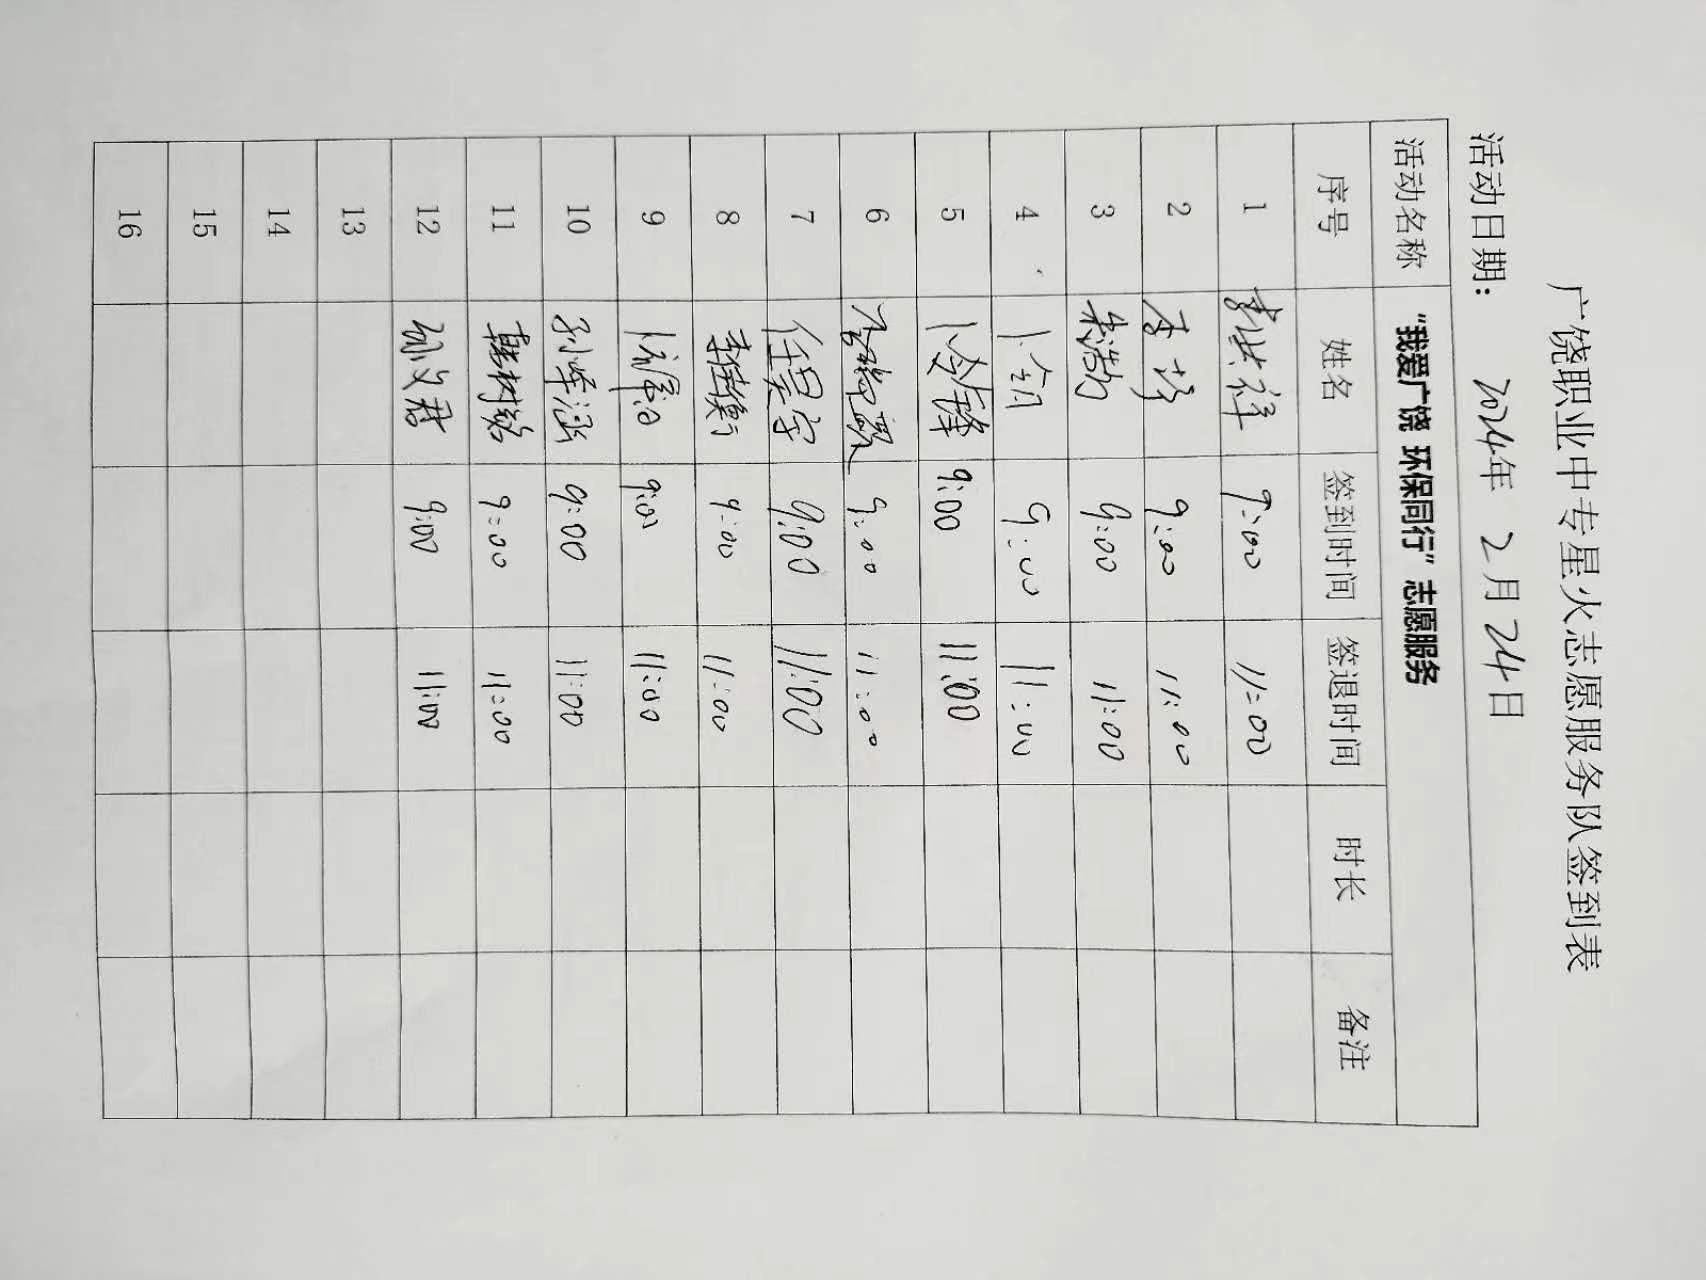 广饶职业中专星火志愿服务队签到表
活动日期： 2024年 2月24日
活动名称 “我爱广饶 环保同行”志愿服务
序号 姓名 签到时间 签退时间 时长 备注
1 9:00 11:00
2 9:00 11:00
3 朱浩 9:00 11:00
4 9:00 11:00
5 9:00 11:00
6 9:00 11:00
7 任昊宇 9:00 11:00
8 李佳衡 9:00 11:00
9 9:00 11:00
10 9:00 11:00
11 9:00 11:00
12 孙文君 9:00 11:00
13
14
15
16